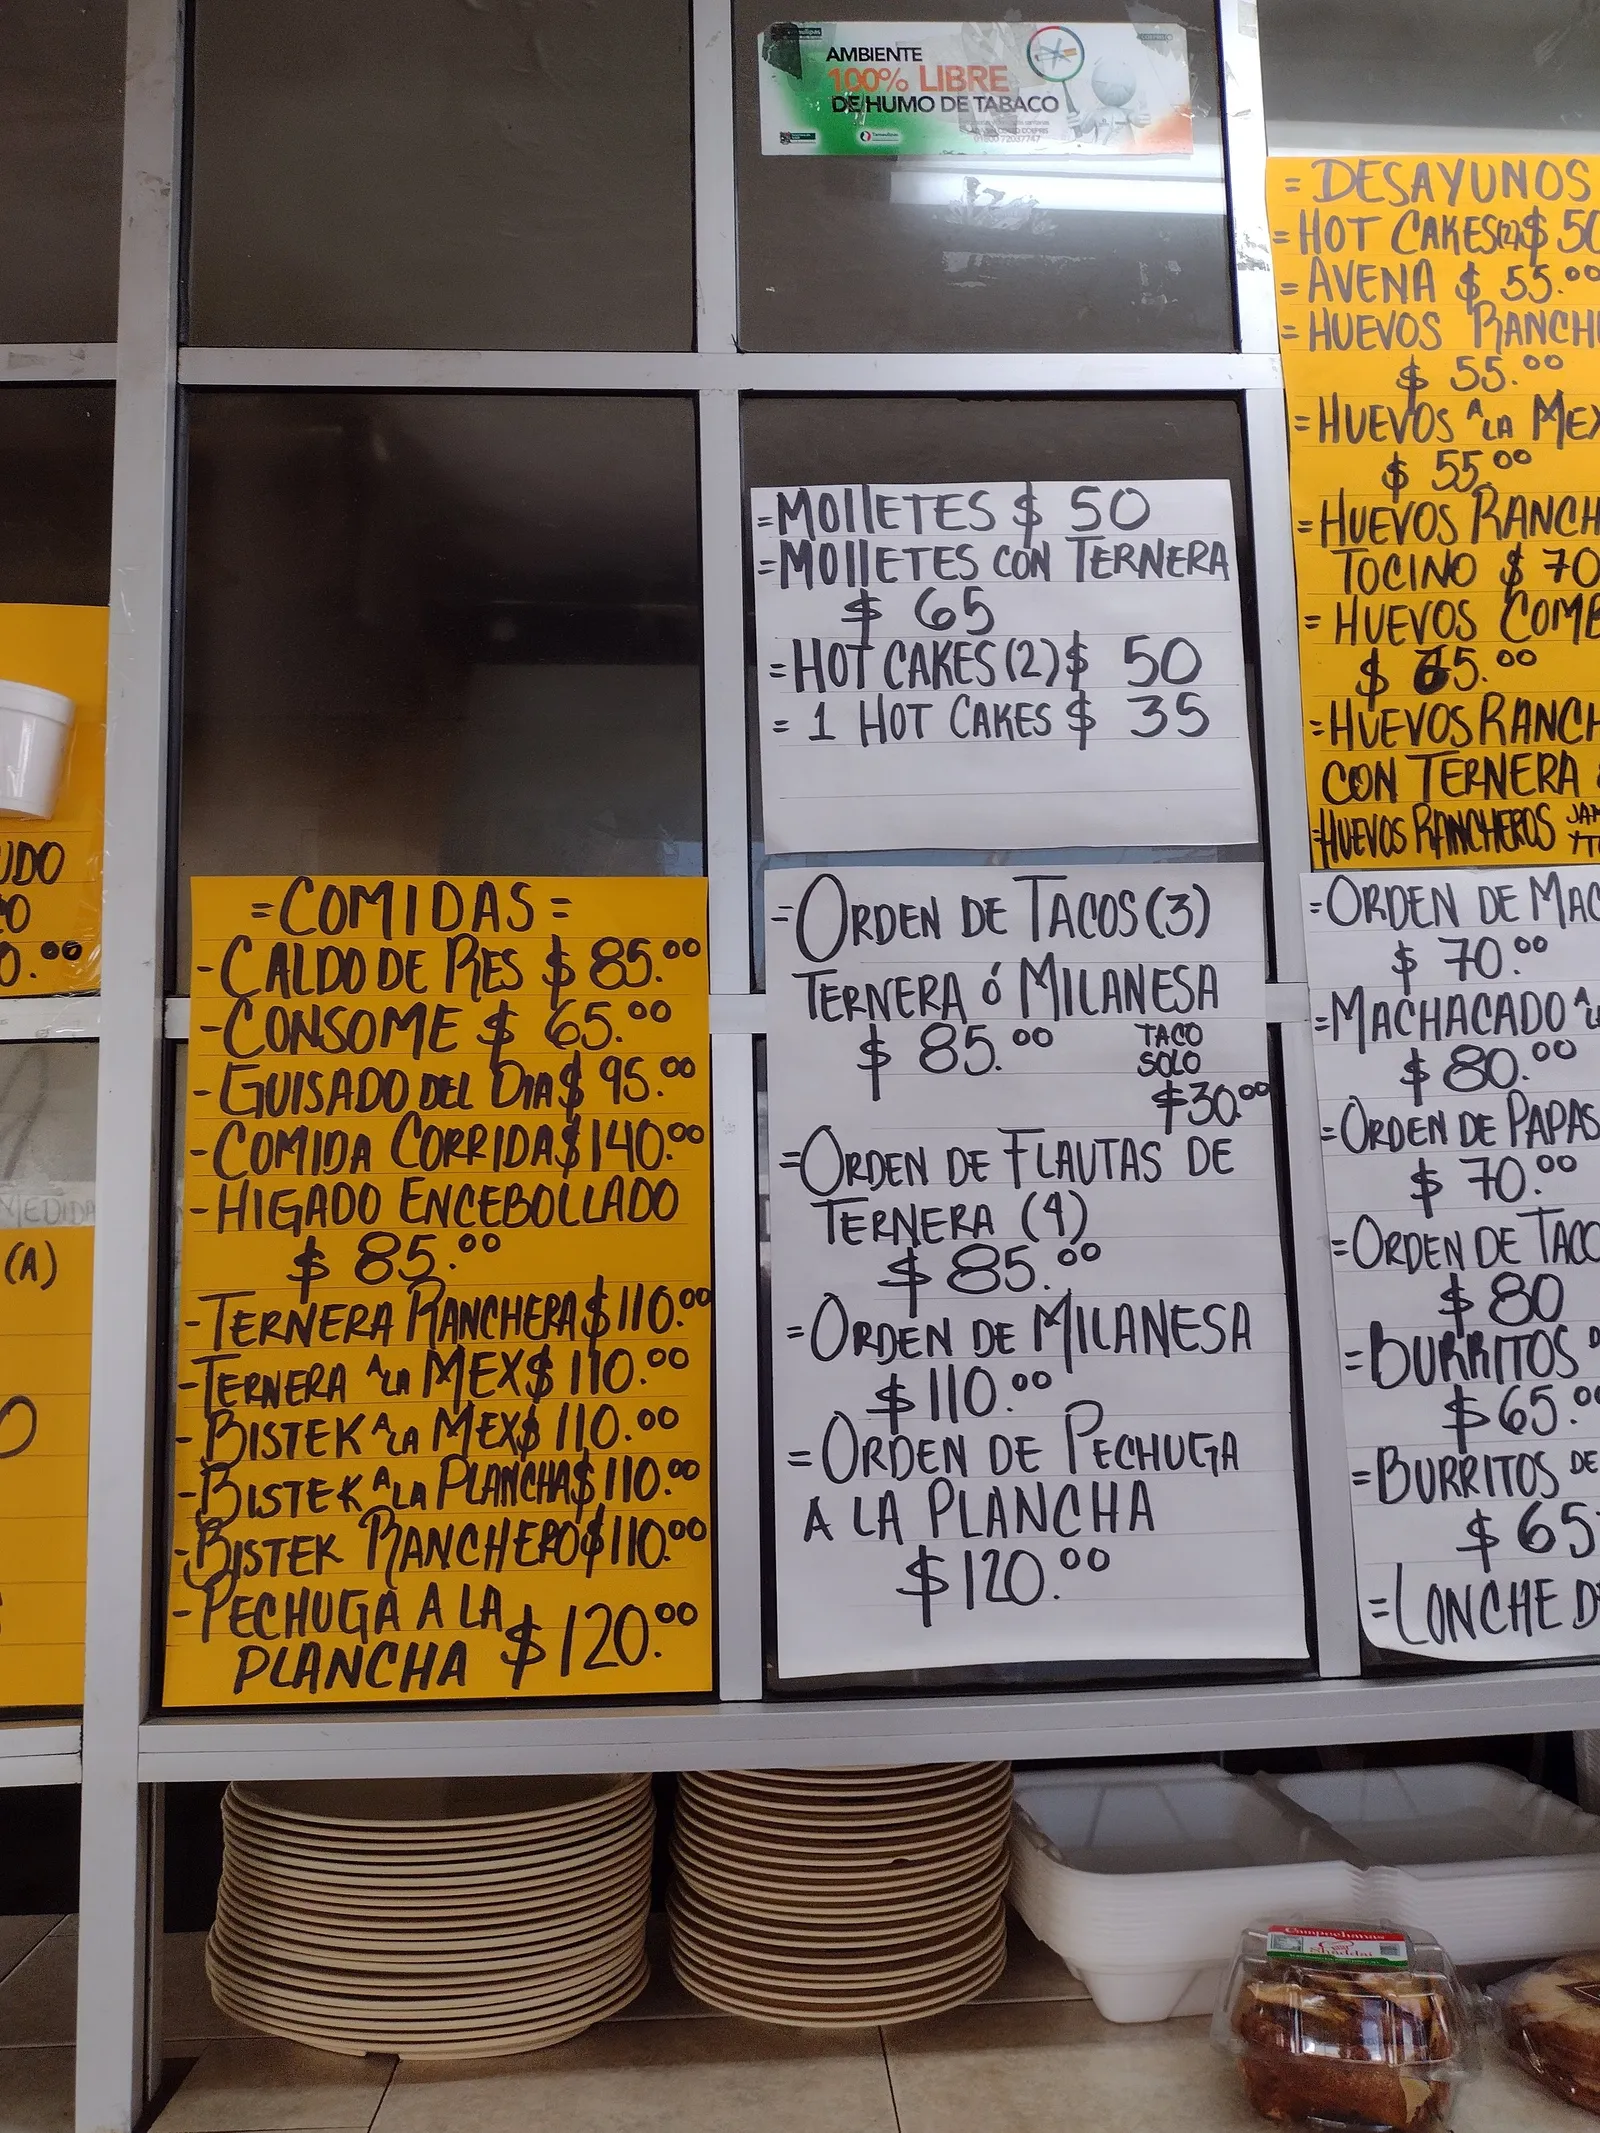 AMBIENTE
100% LIBRE
DE HUMO DE TABACO
Tamaulipas
UDO
0.00
MEDIDA
(A)
=COMIDAS=
-CALDO DE RES $ 85.00
-CONSOME $ 65.00
-GUISADO DEL DIA $ 95.00
-COMIDA CORRIDA $140.00
-HIGADO ENCEBOLLADO
$ 85.00
-TERNERA RANCHERA $110.00
-TERNERA A LA MEX $ 110.00
-BISTEK A LA MEX $ 110.00
-BISTEK A LA PLANCHA $110.00
-BISTEK RANCHERO $110.00
-PECHUGA A LA
PLANCHA $120.00
=MOLLETES $ 50
=MOLLETES CON TERNERA
$ 65
=HOT CAKES (2) $ 50
= 1 HOT CAKES $ 35
=ORDEN DE TACOS (3)
TERNERA ó MILANESA
$ 85.00 TACO
SOLO
$30.00
=ORDEN DE FLAUTAS DE
TERNERA (4)
$ 85.00
=ORDEN DE MILANESA
$110.00
=ORDEN DE PECHUGA
A LA PLANCHA
$120.00
= DESAYUNOS
=HOT CAKES(2) $ 50
=AVENA $ 55.00
=HUEVOS RANCH
$ 55.00
=HUEVOS A LA MEX
$ 55.00
=HUEVOS RANCH
TOCINO $ 70
=HUEVOS COMB
$ 65.00
=HUEVOS RANCH
CON TERNERA
=HUEVOS RANCHEROS JAM
Y TO
=ORDEN DE MAC
$ 70.00
=MACHACADO A LA
$ 80.00
=ORDEN DE PAPAS
$ 70.00
=ORDEN DE TACO
$ 80
=BURRITOS D
$65.00
=BURRITOS DE
$ 65
=LONCHE D
Campechanas
Shaddai